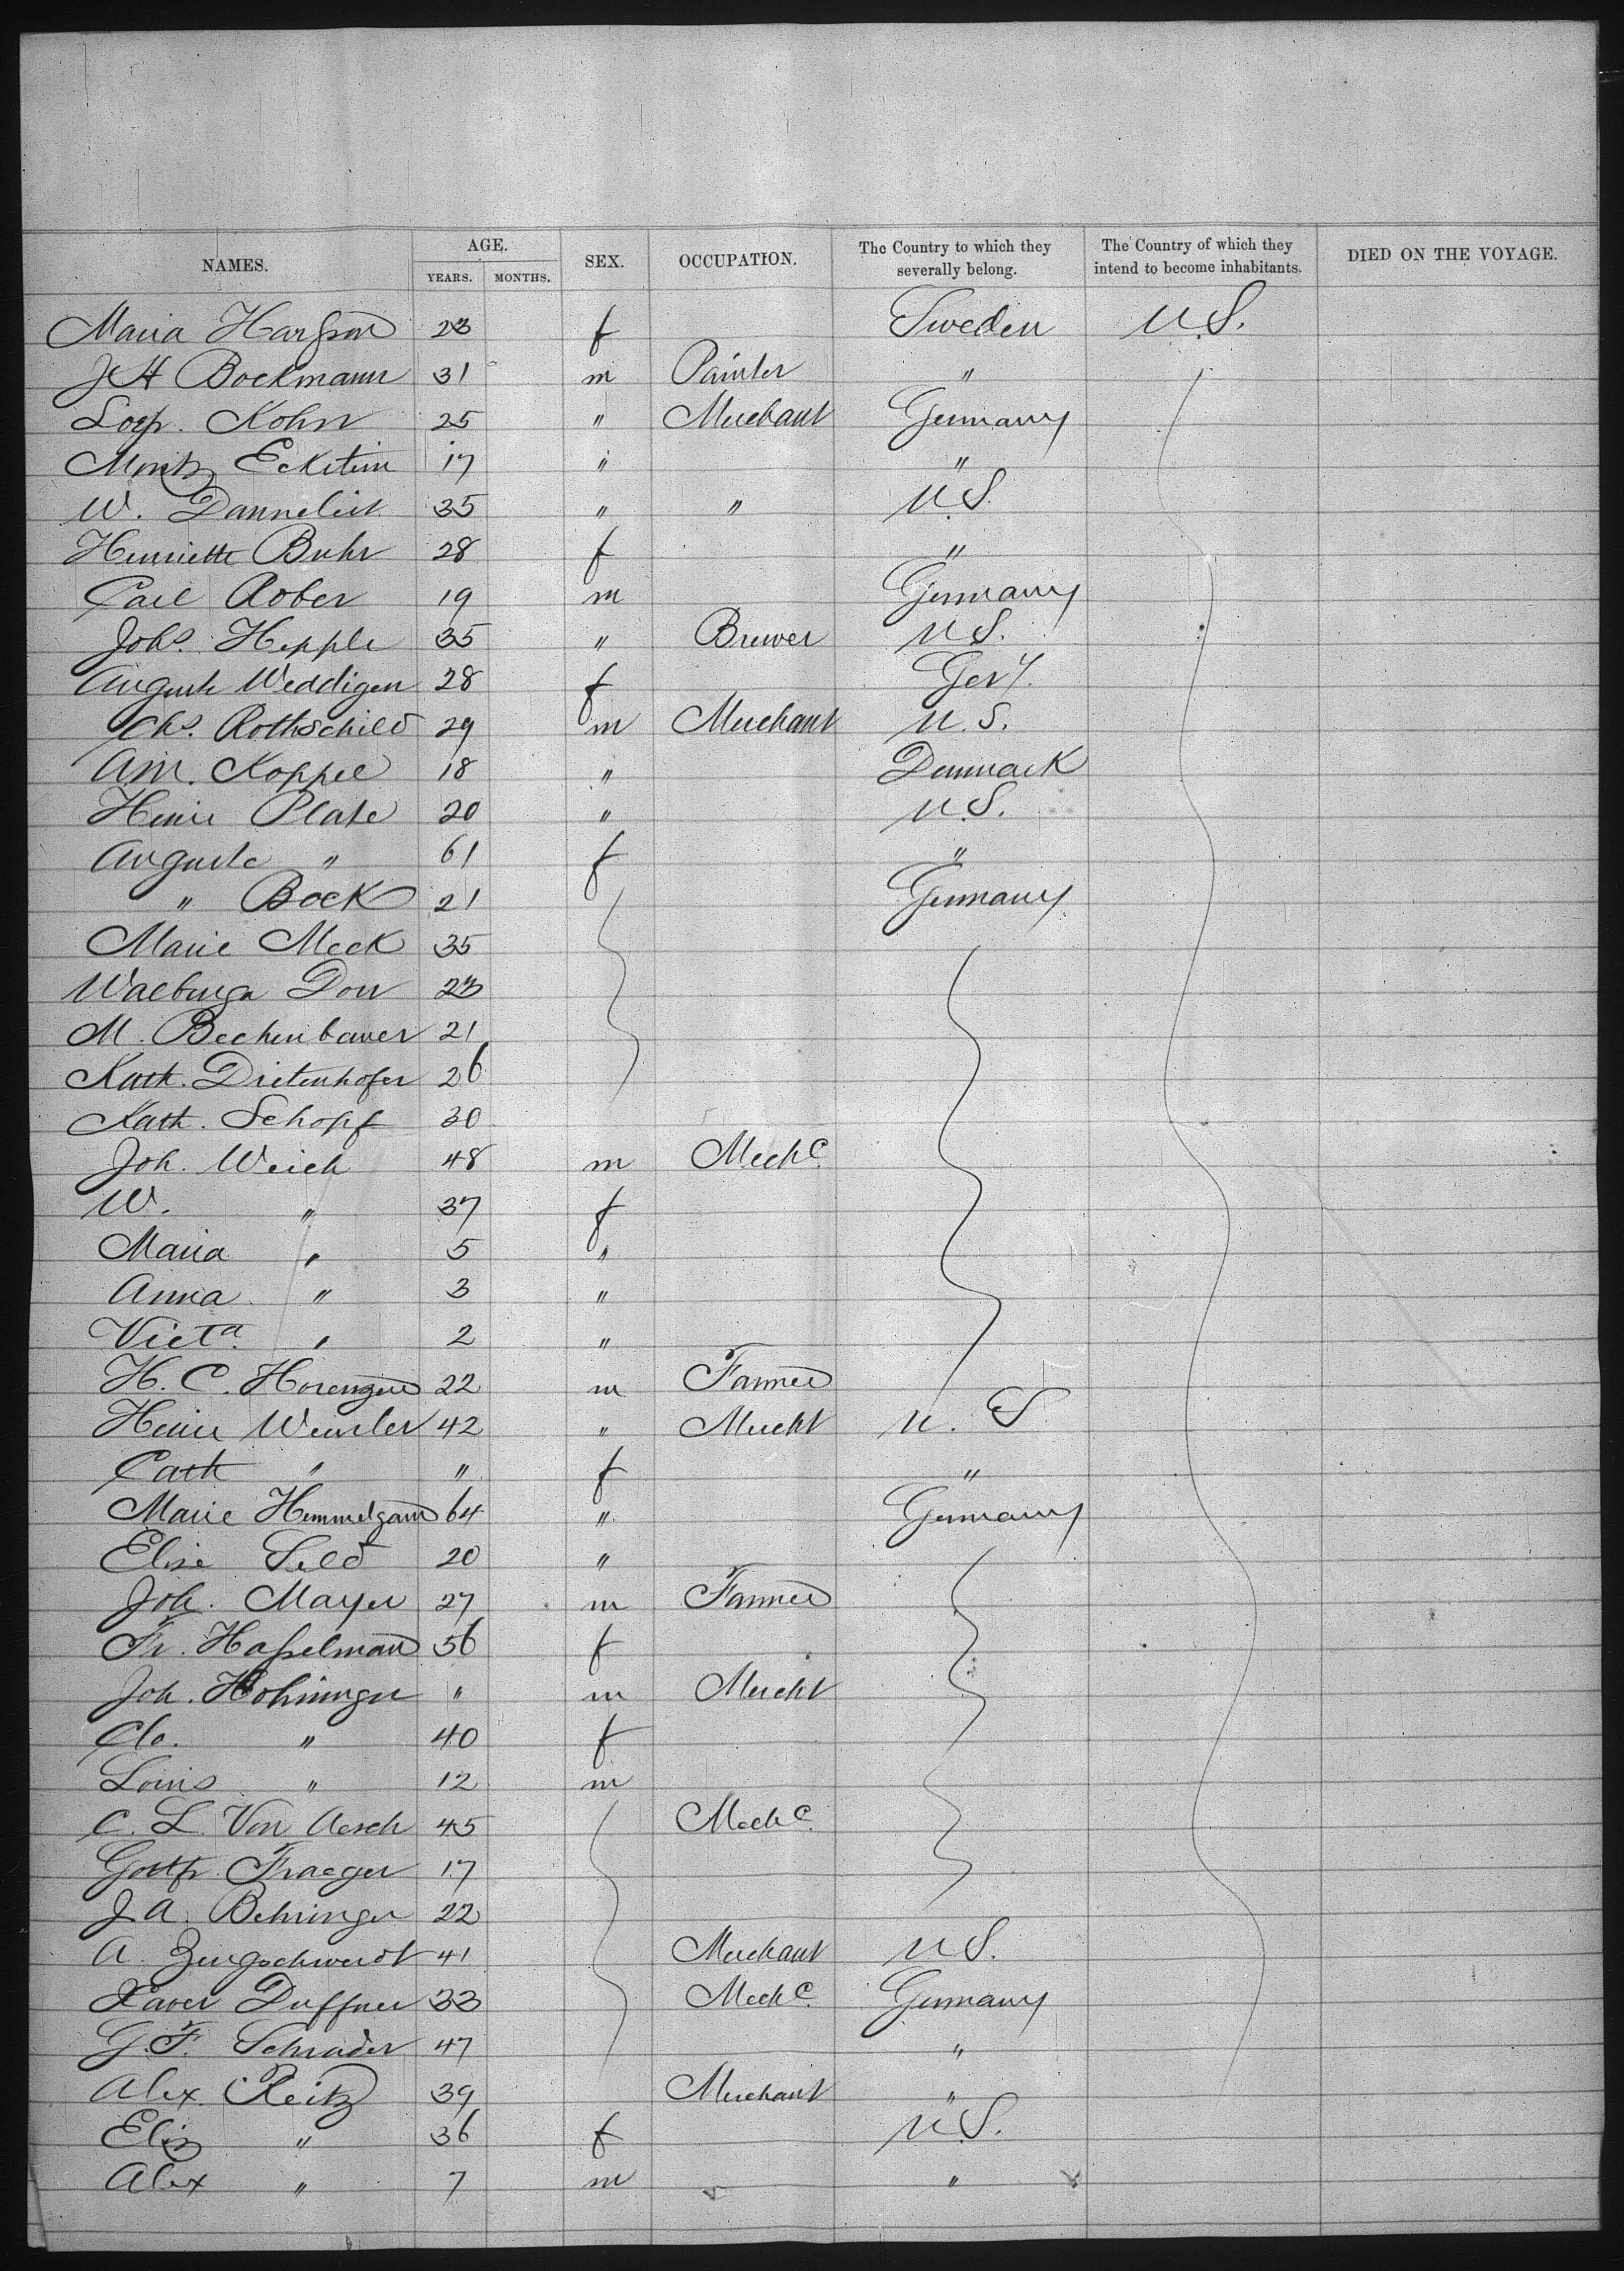 NAMES. AGE. YEARS. MONTHS. SEX. OCCUPATION. The Country to which they severally belong. The Country of which they intend to become inhabitants. DIED ON THE VOYAGE.
Maria 23 f Sweden U.S.
J H Bockmann 31 m Painter "
Kohn 25 " Merchant Germany
Moritz Eckstein 17 " "
W. 35 " " U.S.
Henriette Buhr 28 f "
Carl Rober 19 m Germany
Johs. Hepple 35 " Brewer U.S.
Auguste Weddigen 28 f Gery.
Chs. Rothschild 29 m Merchant U.S.
Am. Koppel 18 " Denmark
Heinr Plate 20 " U.S.
Auguste " 61 f "
" Bock 21 Germany
Marie Meck 35
Walburga Dorr 23
M. Beckenbauer 21
Kath. Dietenhofer 26
Kath. Schopf 30
Joh. Weich 48 m Mechc
W. " 37 f
Maria " 5 "
Anna " 3 "
Victa. " 2 "
H. C. 22 m Farmer
Heinr 42 " Mercht U. S
Cath " " f "
Marie 64 " Germany
Elise 20 "
Joh. Mayer 27 m Farmer
Fr. Haſselmann 56 f
Joh. " m Mercht
" 40 f
Louis " 12 m
C. L. Von Aesch 45 Mechc.
Gottfr. Traeger 17
J. A. Behringer 22
A. 41 Merchant U.S.
Xaver Duffner 33 Mechc. Germany
G. F. Schrader 47 "
Alex. Reitz 39 Merchant "
Eliz " 36 f U.S.
Alex " 7 m "